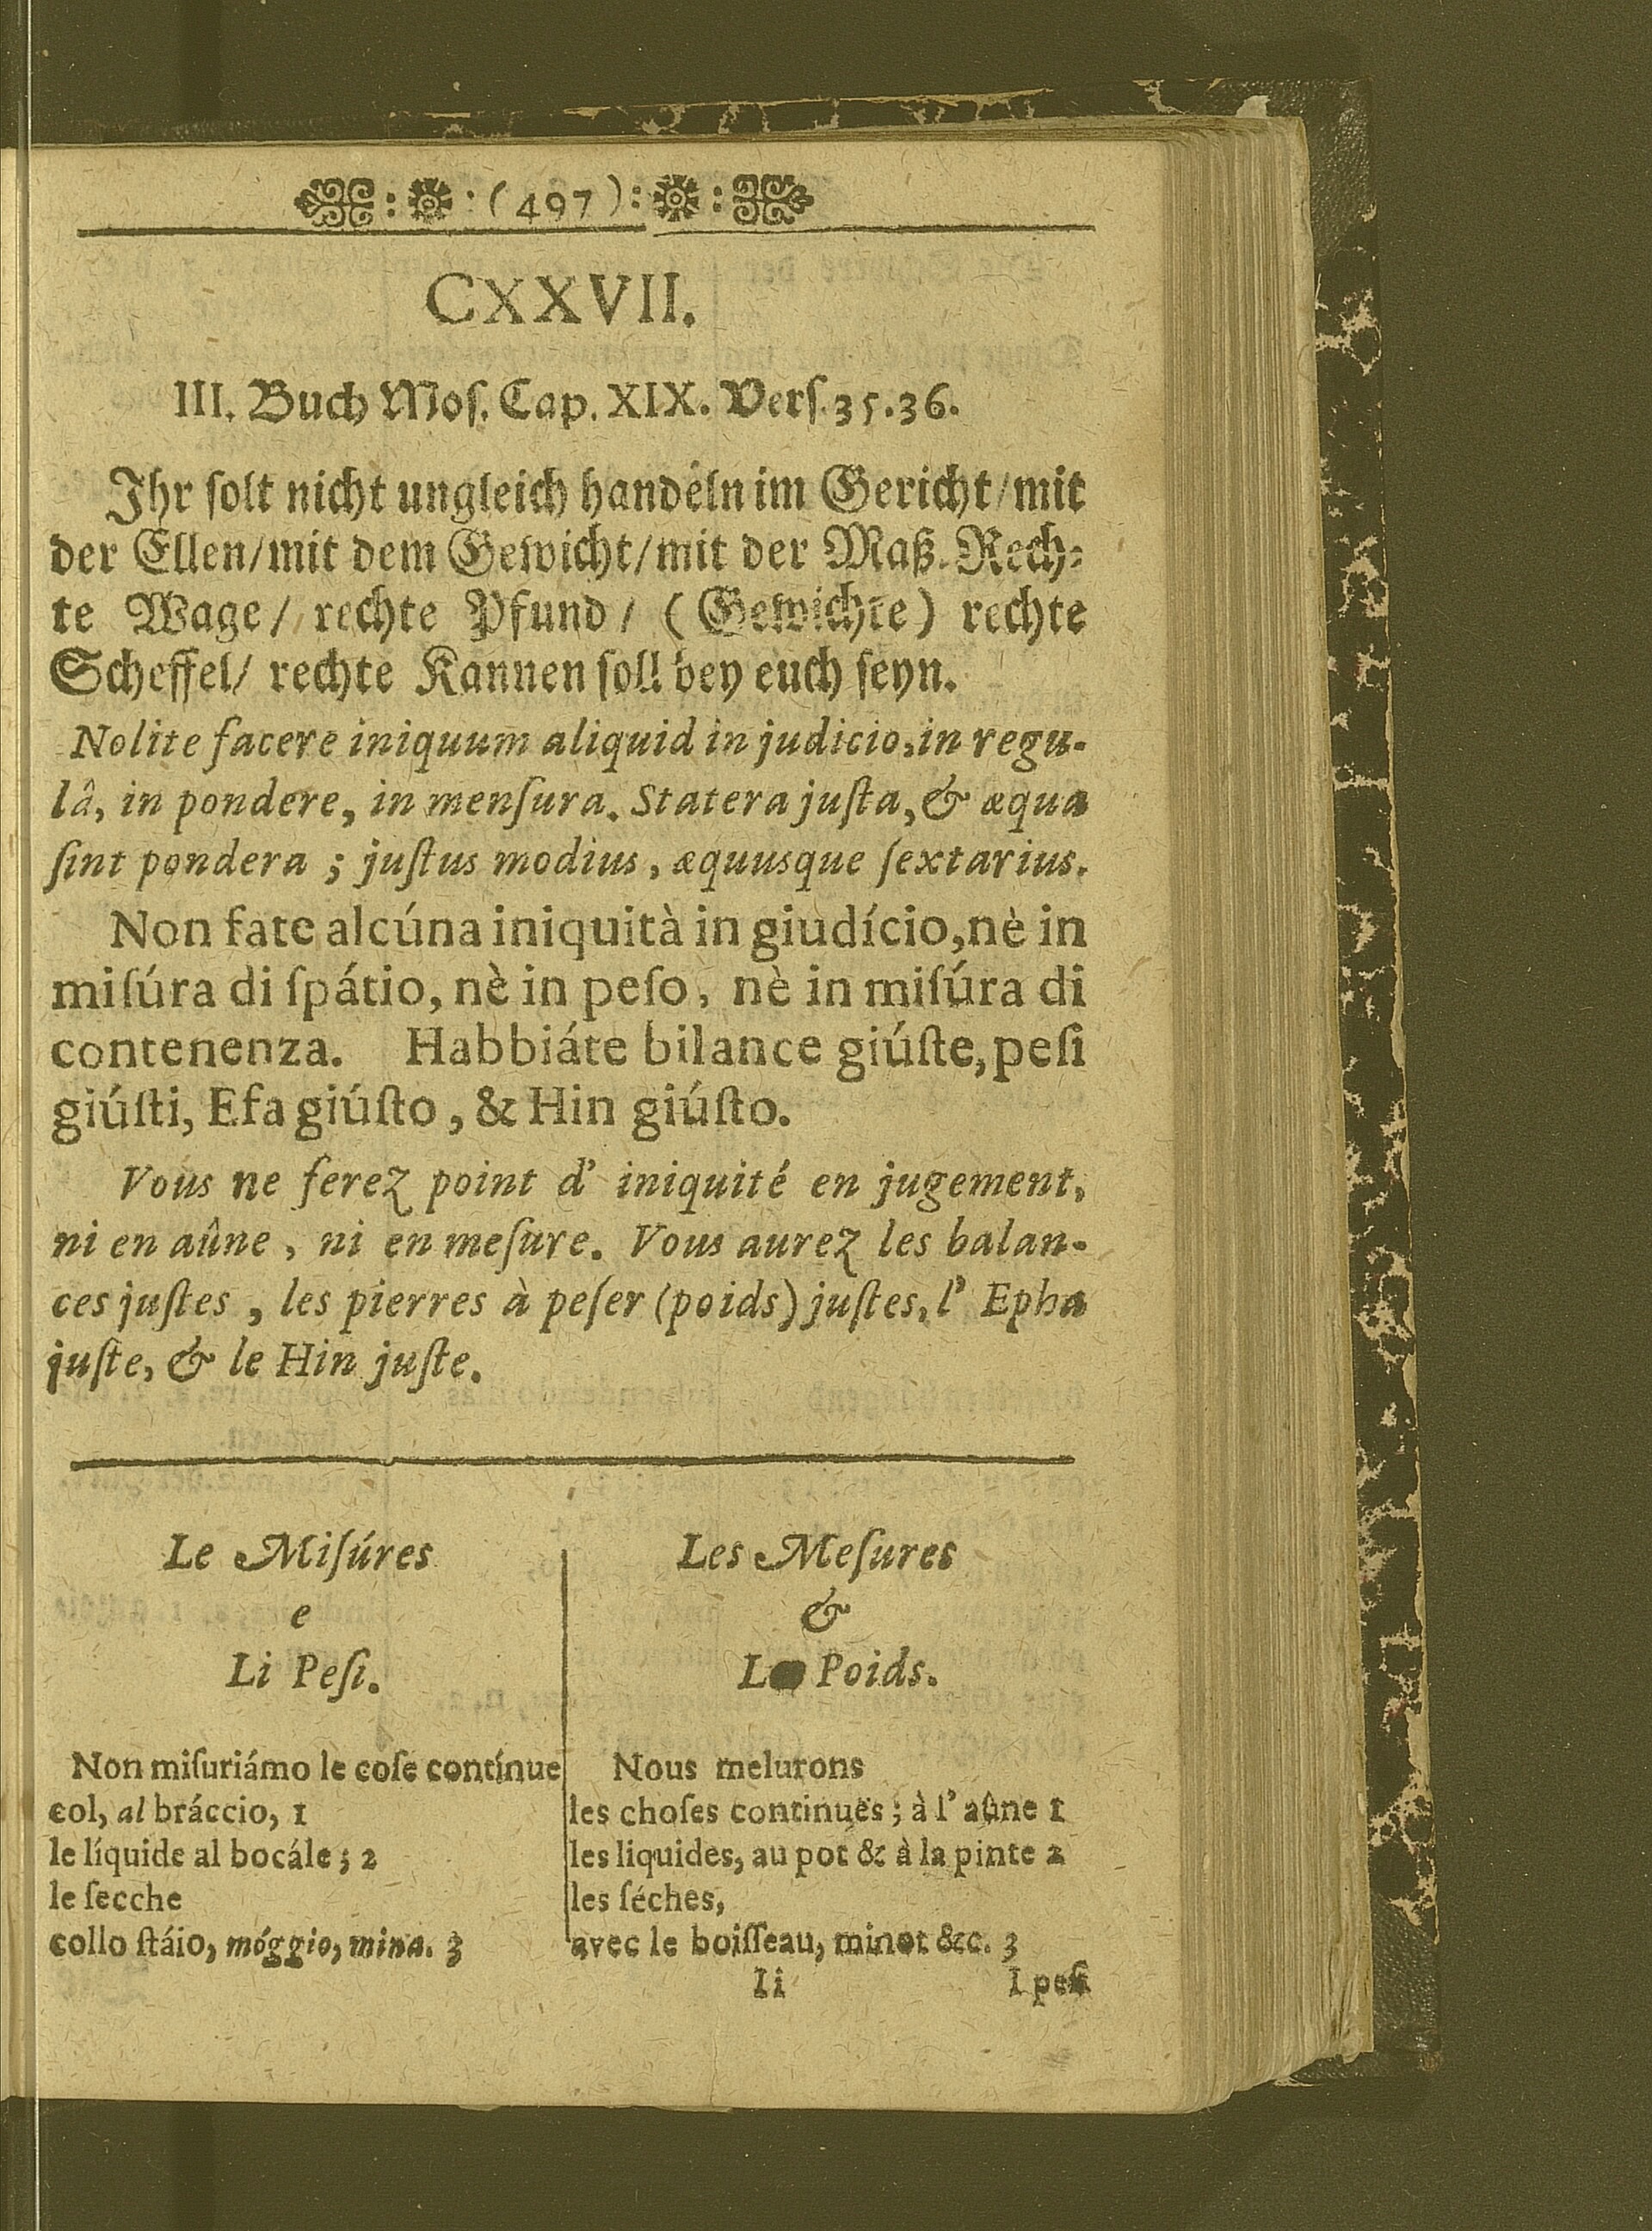 (497)
CXXVII.
III. Buch Moſ. Cap. XIX. Verſ. 35. 36.
Ihr ſolt nicht ungleich handeln im Gericht/mit
der Ellen/mit dem Gewicht/mit der Maß. Rech⸗
te Wage/ rechte Pfund/ (Gewichte) rechte
Scheffel/ rechte Kannen ſoll bey euch ſeyn.
Nolite facere iniquum aliquid in judicio, in regu-
lâ, in pondere, in menſura. Statera juſta, & æqua
ſint pondera ; juſtus modius, æquusque ſextarius.
Non fate alcúna iniquità in giudício, nè in
miſúra di ſpátio, nè in peſo, nè in miſúra di
contenenza. Habbiáte bilance giúſte, peſi
giúſti, Efa giúſto, & Hin giúſto.
Vous ne ferez point d' iniquité en jugement,
ni en aûne, ni en meſure. Vous aurez les balan-
ces juſtes, les pierres à peſer (poids) juſtes, l' Epha
juſte, & le Hin juſte.
Le Miſúres
e
Li Peſi.
Non miſuriámo le coſe contínue
col, al bráccio, 1
le líquide al bocále ; 2
le ſecche
collo ſtáio, móggio, mina. 3
Les Meſures
&
Poids.
Nous meſurons
les choſes continuës ; à l' aûne 1
les liquides, au pot & à la pinte 2
les ſéches,
avec le boiſſeau, minot &c. 3
Ii
I peſi